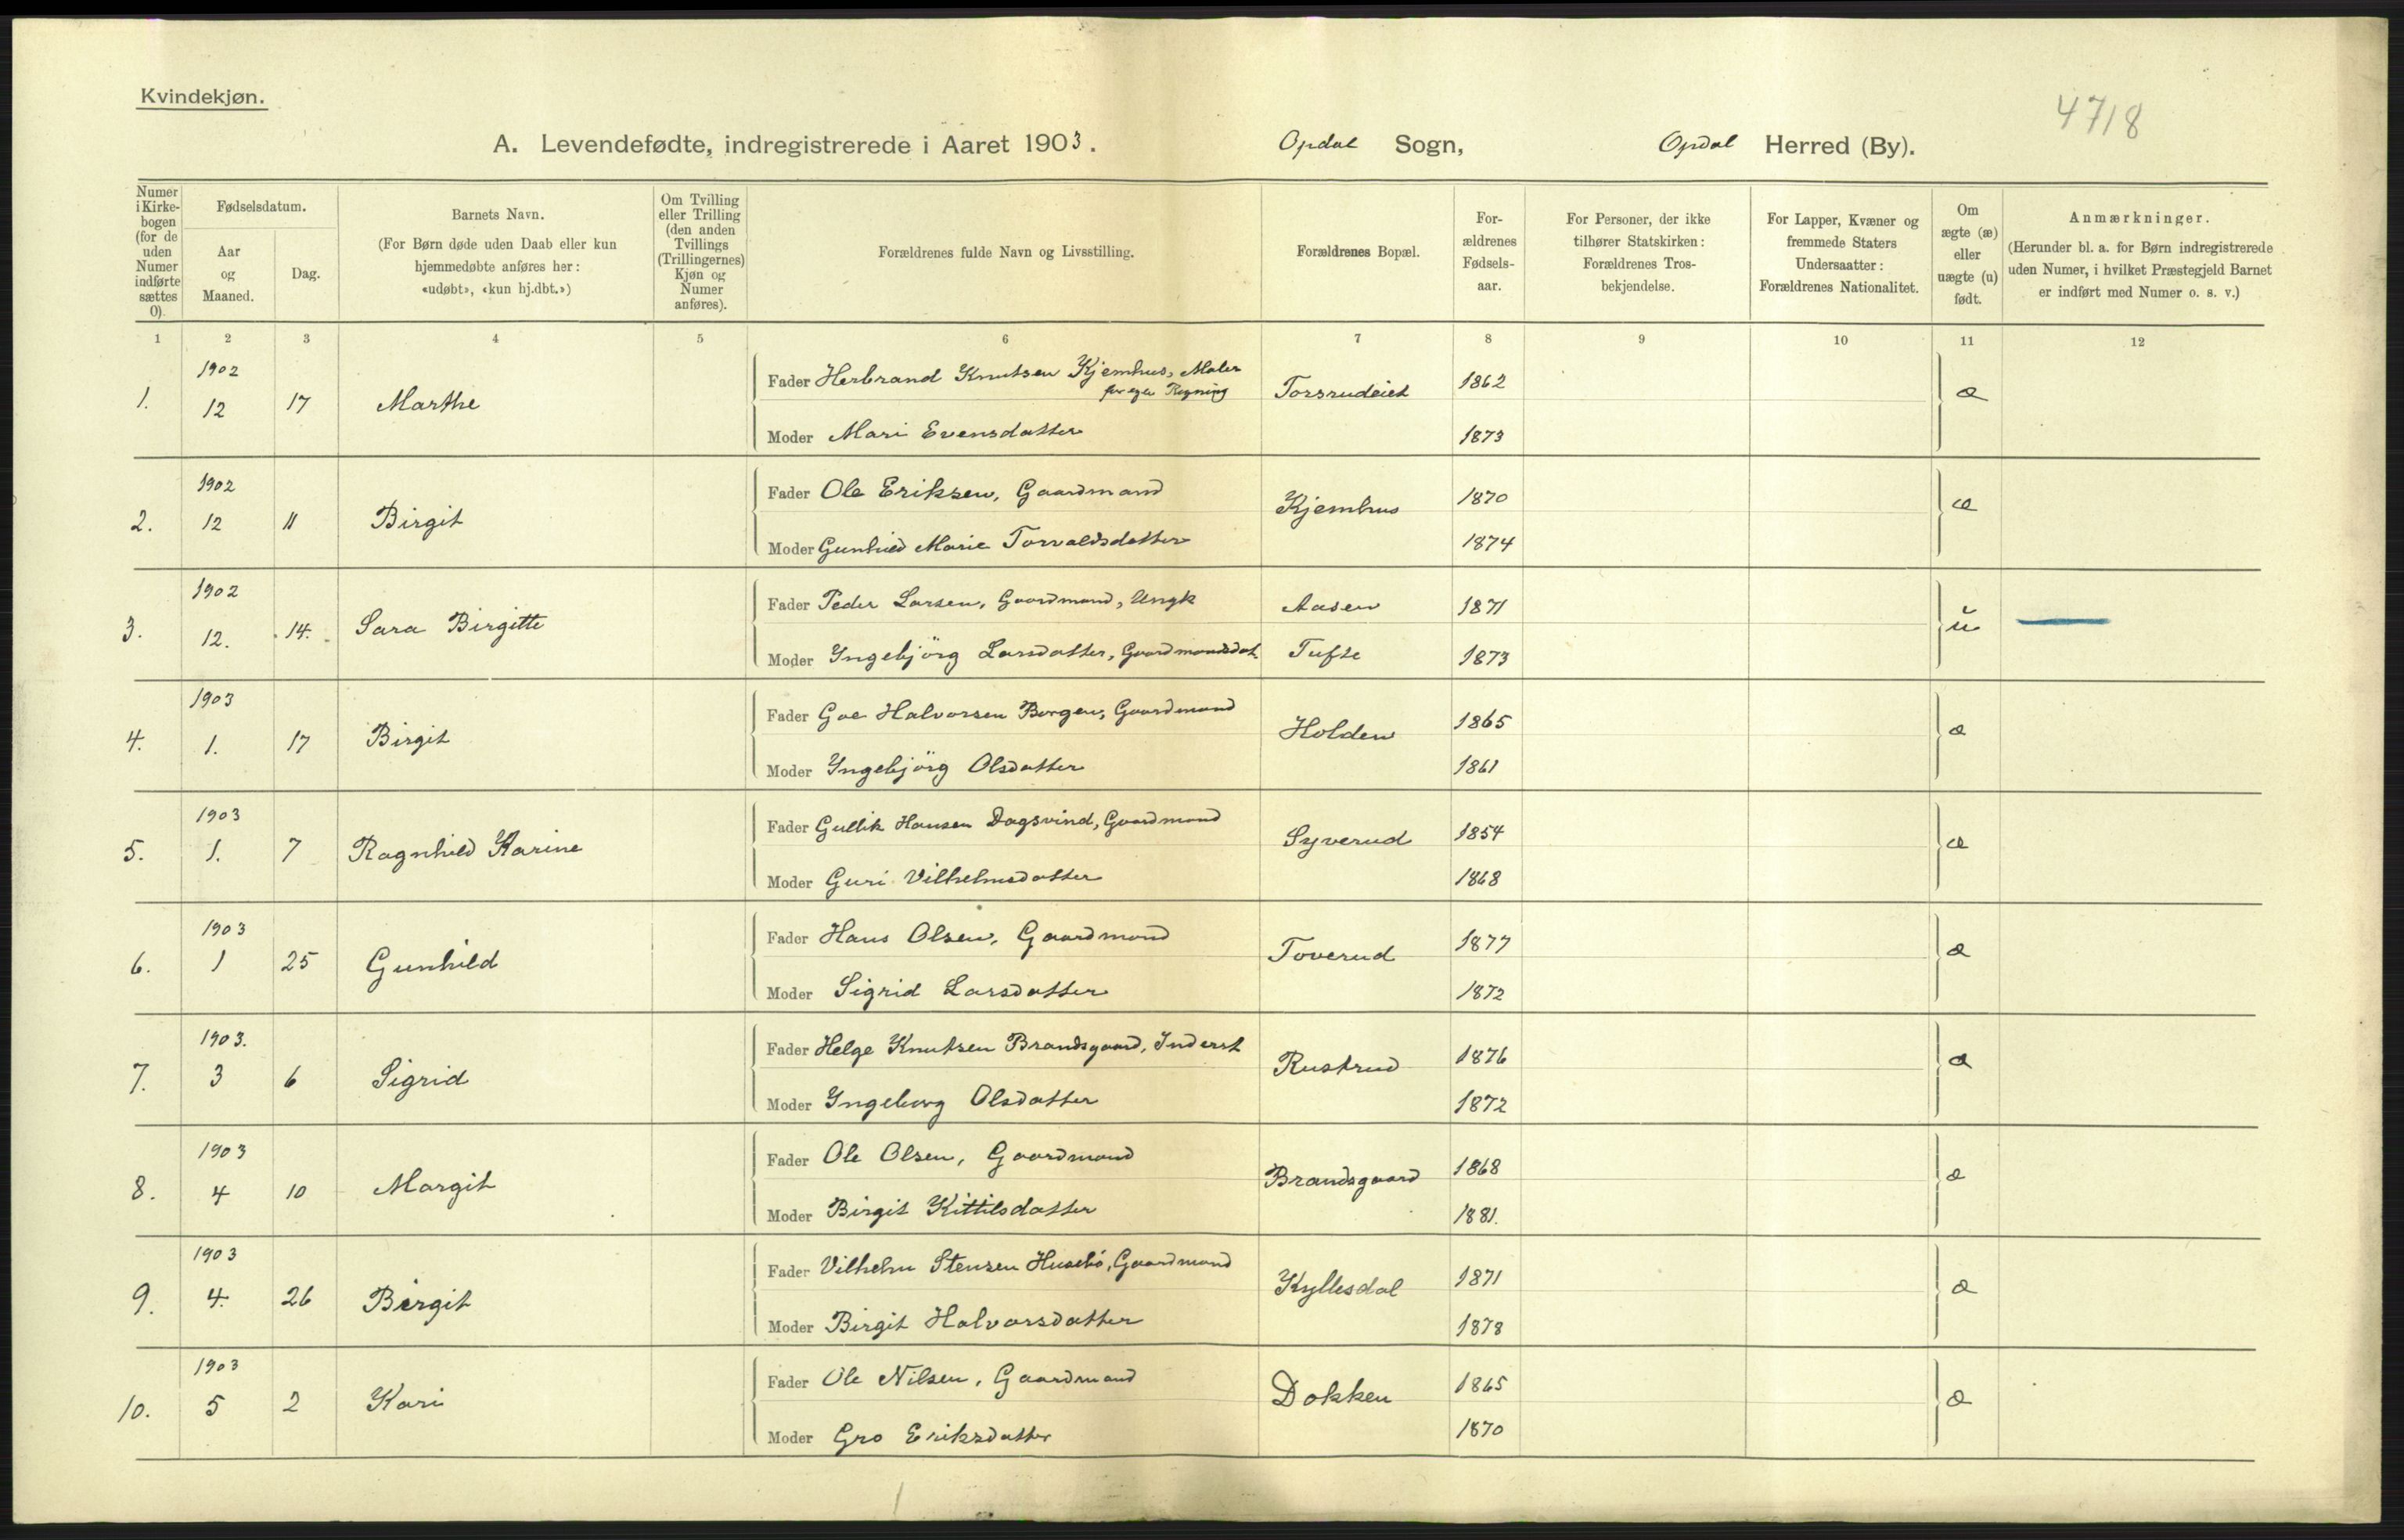 Kvindekjøn.
4718
A. Levendefødte, indregistrerede i Aaret 1903. Opdal Sogn, Opdal Herred (By).
Numer i Kirkebogen (for de uden Numer indførte sættes 0).
Fødselsdatum.
Aar og Maaned.
Dag.
Barnets Navn.
(For Børn døde uden Daab eller kun hjemmedøbte anføres her: «udøbt», «kun hj.dbt.»)
Om Tvilling eller Trilling (den anden Tvillings (Trillingernes) Kjøn og Numer anføres).
Forældrenes fulde Navn og Livsstilling.
Forældrenes Bopæl.
Forældrenes Fødselsaar.
For Personer, der ikke tilhører Statskirken: Forældrenes Trosbekjendelse.
For Lapper, Kvæner og fremmede Staters Undersaatter: Forældrenes Nationalitet.
Om ægte (æ) eller uægte (u) født.
Anmærkninger.
(Herunder bl. a. for Børn indregistrerede uden Numer, i hvilket Præstegjeld Barnet er indført med Numer o. s. v.)
1 2 3 4 5 6 7 8 9 10 11 12
1. 1902 12 17 Marthe Fader Herbrand Knutsen Kjemhus, Maler for egen Regning Torsrudeiet 1862 æ
Moder Mari Evensdatter 1873
2. 1902 12 11 Birgit Fader Ole Eriksen, Gaardmand Kjemhus 1870 æ
Moder Gunhild Marie Torvaldsdatter 1874
3. 1902 12. 14. Sara Birgitte Fader Peder Larsen, Gaardmand, Ungk Aasen 1871 u
Moder Ingebjörg Larsdatter, Gaardmandsdat. Tufte 1873
4. 1903 1. 17 Birgit Fader Goe Halvorsen Borgen, Gaardmand Holden 1865 æ
Moder Ingebjörg Olsdatter 1861
5. 1903 1. 7 Ragnhild Karine Fader Gullik Hansen Dagsvind, Gaardmand Syverud 1854 æ
Moder Guri Vilhelmsdatter 1868
6. 1903 1 25 Gunhild Fader Hans Olsen, Gaardmand Toverud 1877 æ
Moder Sigrid Larsdatter 1872
7. 1903. 3 6 Sigrid Fader Helge Knutsen Brandsgaard, Inderst Rustrud 1876 æ
Moder Ingeborg Olsdatter 1872
8. 1903 4 10 Margit Fader Ole Olsen, Gaardmand Brandsgaard 1868 æ
Moder Birgit Kittilsdatter 1881.
9. 1903 4. 26 Birgit Fader Vilhelm Stensen Husebö, Gaardmand Kyllesdal 1871 æ
Moder Birgit Halvorsdatter 1878
10. 1903 5 2 Kari Fader Ole Nilsen, Gaardmand Dokken 1865 æ
Moder Gro Eriksdatter 1870